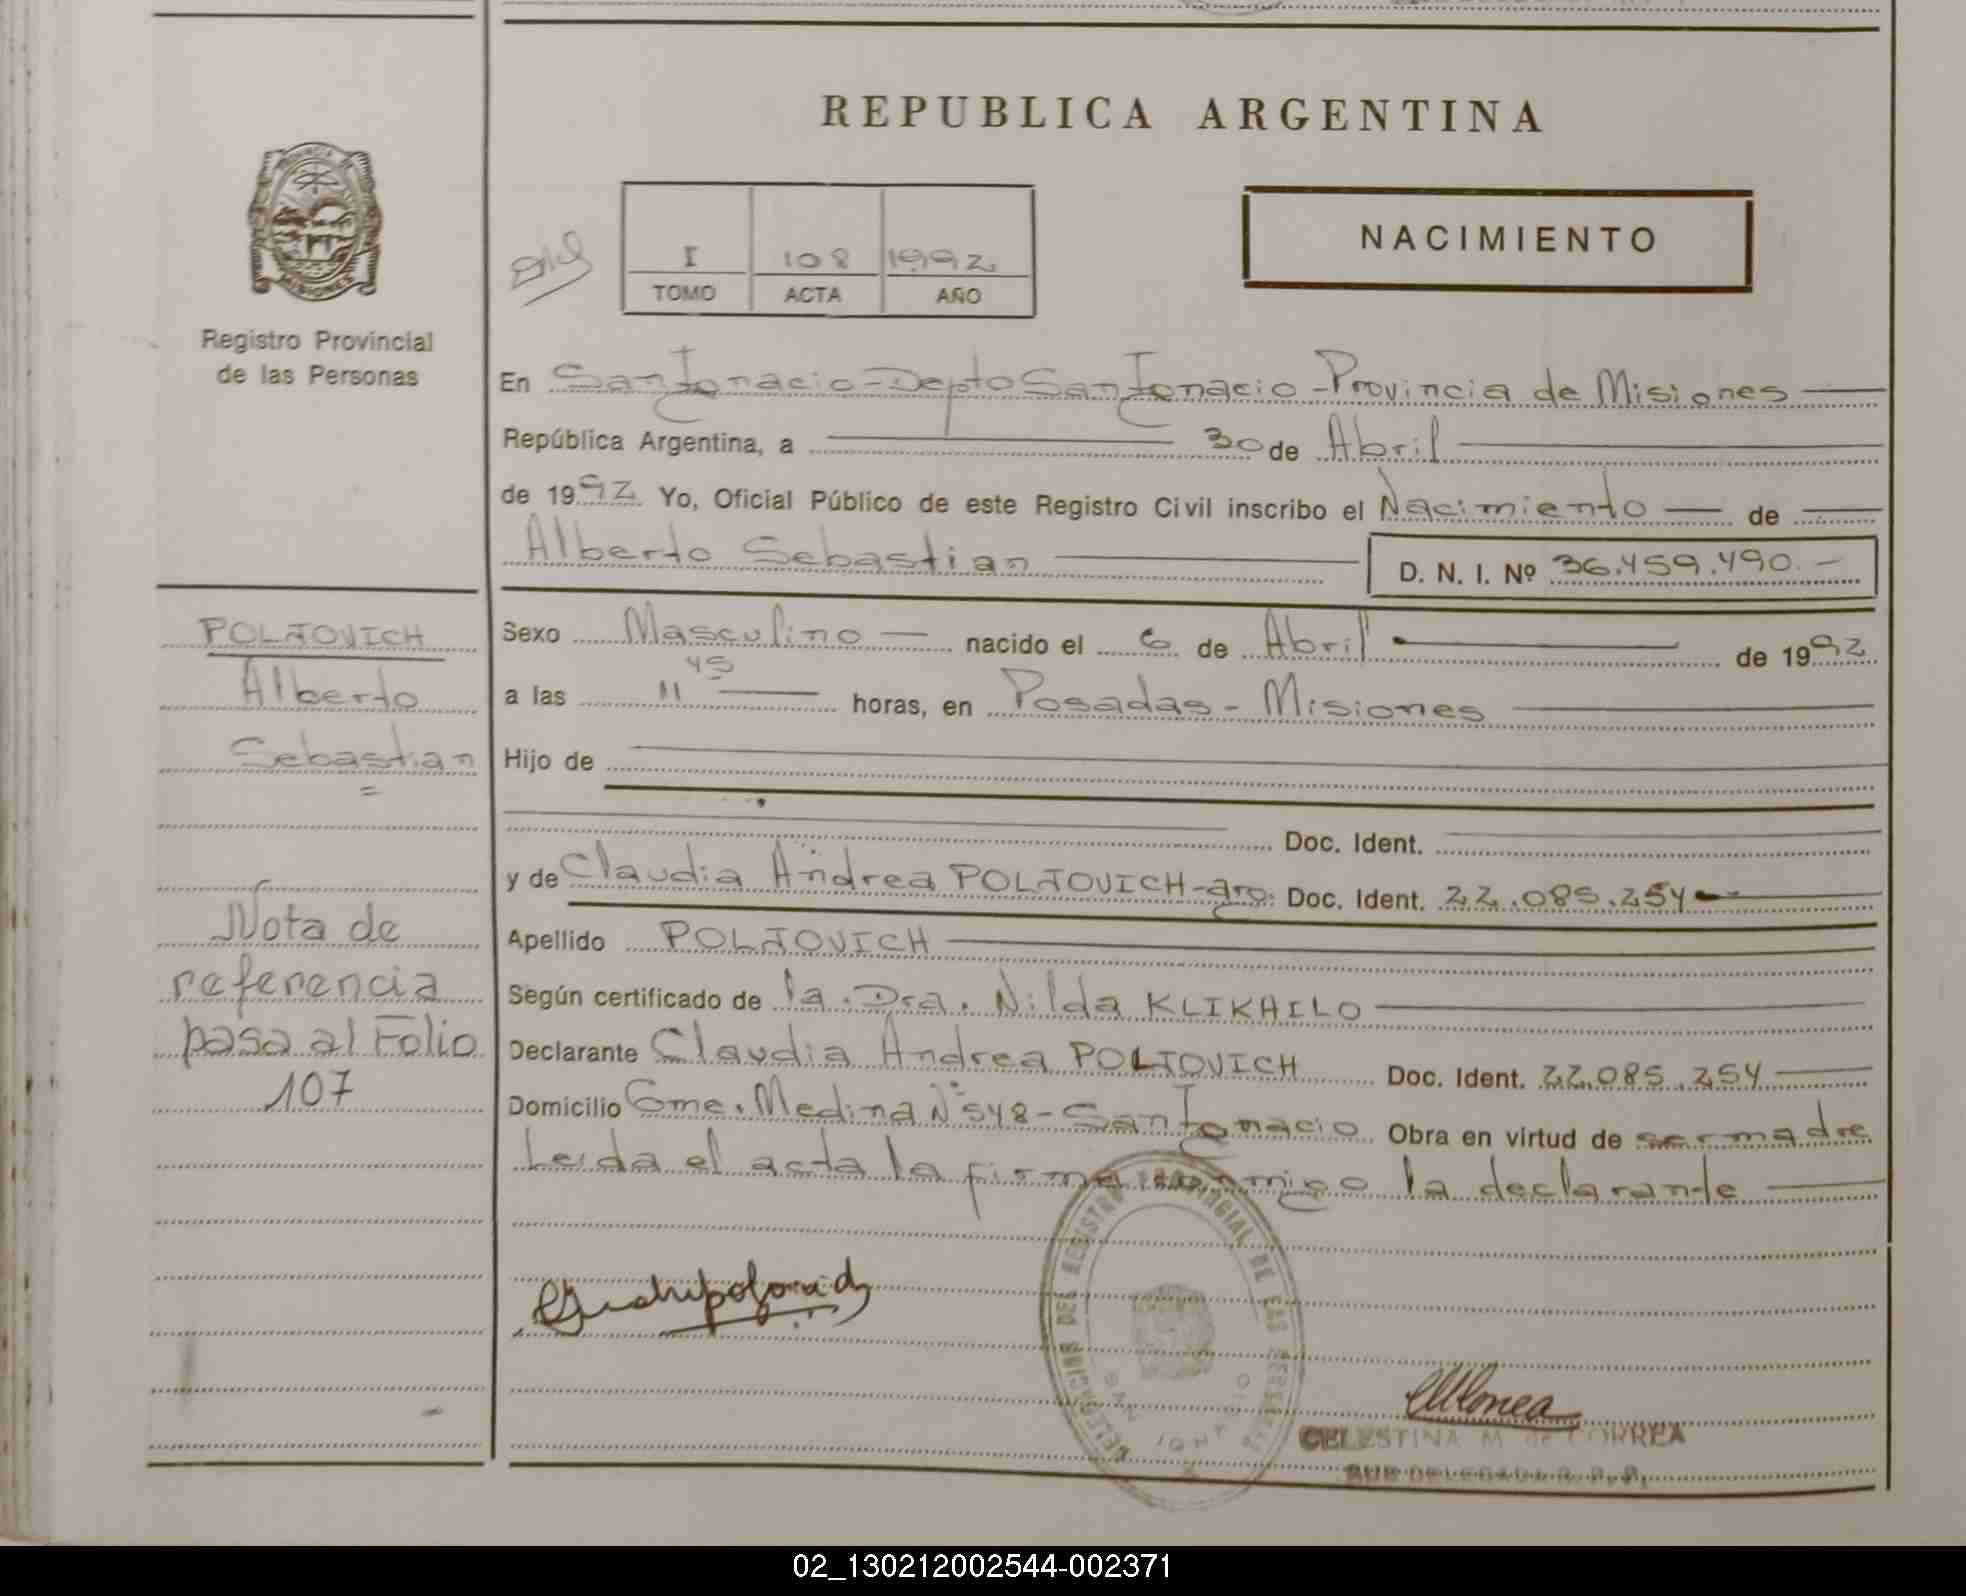 REPUBLICA ARGENTINA
NACIMIENTO
I 108 1992
TOMO ACTA AÑO
PROVINCIA DE
MISIONES
Registro Provincial
de las Personas
En San Ignacio - Depto San Ignacio - Provincia de Misiones
República Argentina, a 30 de Abril
de 1992 Yo, Oficial Público de este Registro Civil inscribo el Nacimiento de
Alberto Sebastian D. N. I. Nº 36.459.490.-
POLJOVICH
Alberto
Sebastian
Sexo Masculino nacido el 6 de Abril de 1992
a las 11 45 horas, en Posadas - Misiones
Hijo de
Doc. Ident.
y de Claudia Andrea POLJOVICH - arg. Doc. Ident. 22.085.254
Apellido POLJOVICH
Según certificado de la Dra. Nilda KLIKAILO
Declarante Claudia Andrea POLJOVICH Doc. Ident. 22.085.254
Domicilio Gme. Medina Nº 548 - San Ignacio Obra en virtud de ser madre
Leida el acta la firma conmigo la declarante
Nota de
referencia
pasa al Folio
107
DELEGACION DEL REGISTRO PROVINCIAL DE LAS PERSONAS
SAN IGNACIO
CELESTINA M. de CORREA
SUB DELEGADA R. P. P.
02_130212002544-002371